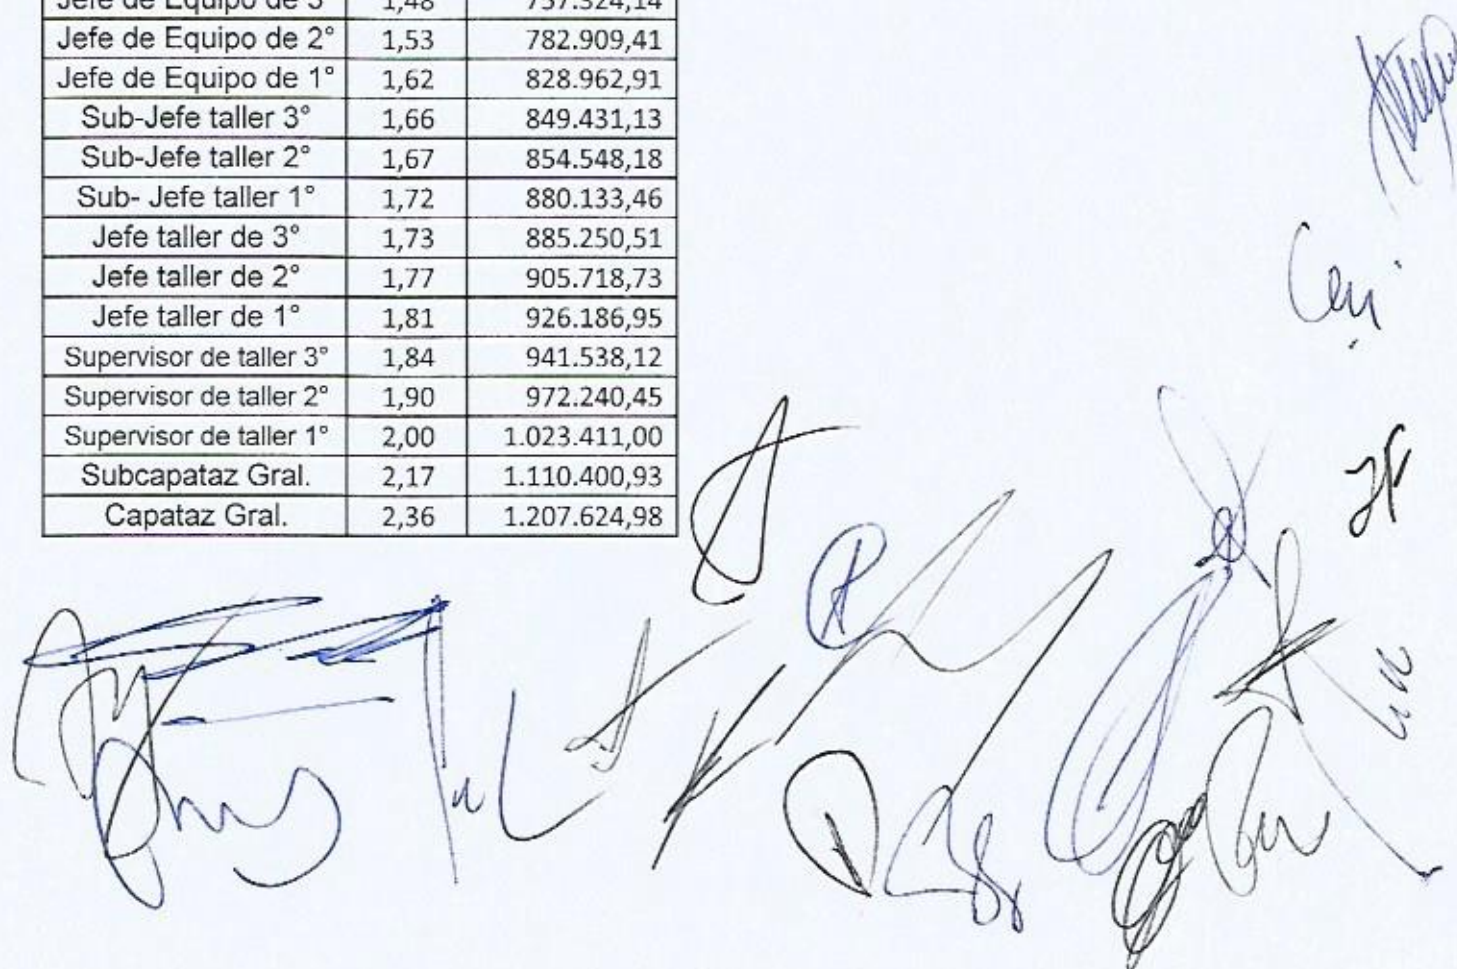 Jefe de Equipo de 3° 1,48 757.324,14
Jefe de Equipo de 2° 1,53 782.909,41
Jefe de Equipo de 1° 1,62 828.962,91
Sub-Jefe taller 3° 1,66 849.431,13
Sub-Jefe taller 2° 1,67 854.548,18
Sub- Jefe taller 1° 1,72 880.133,46
Jefe taller de 3° 1,73 885.250,51
Jefe taller de 2° 1,77 905.718,73
Jefe taller de 1° 1,81 926.186,95
Supervisor de taller 3° 1,84 941.538,12
Supervisor de taller 2° 1,90 972.240,45
Supervisor de taller 1° 2,00 1.023.411,00
Subcapataz Gral. 2,17 1.110.400,93
Capataz Gral. 2,36 1.207.624,98